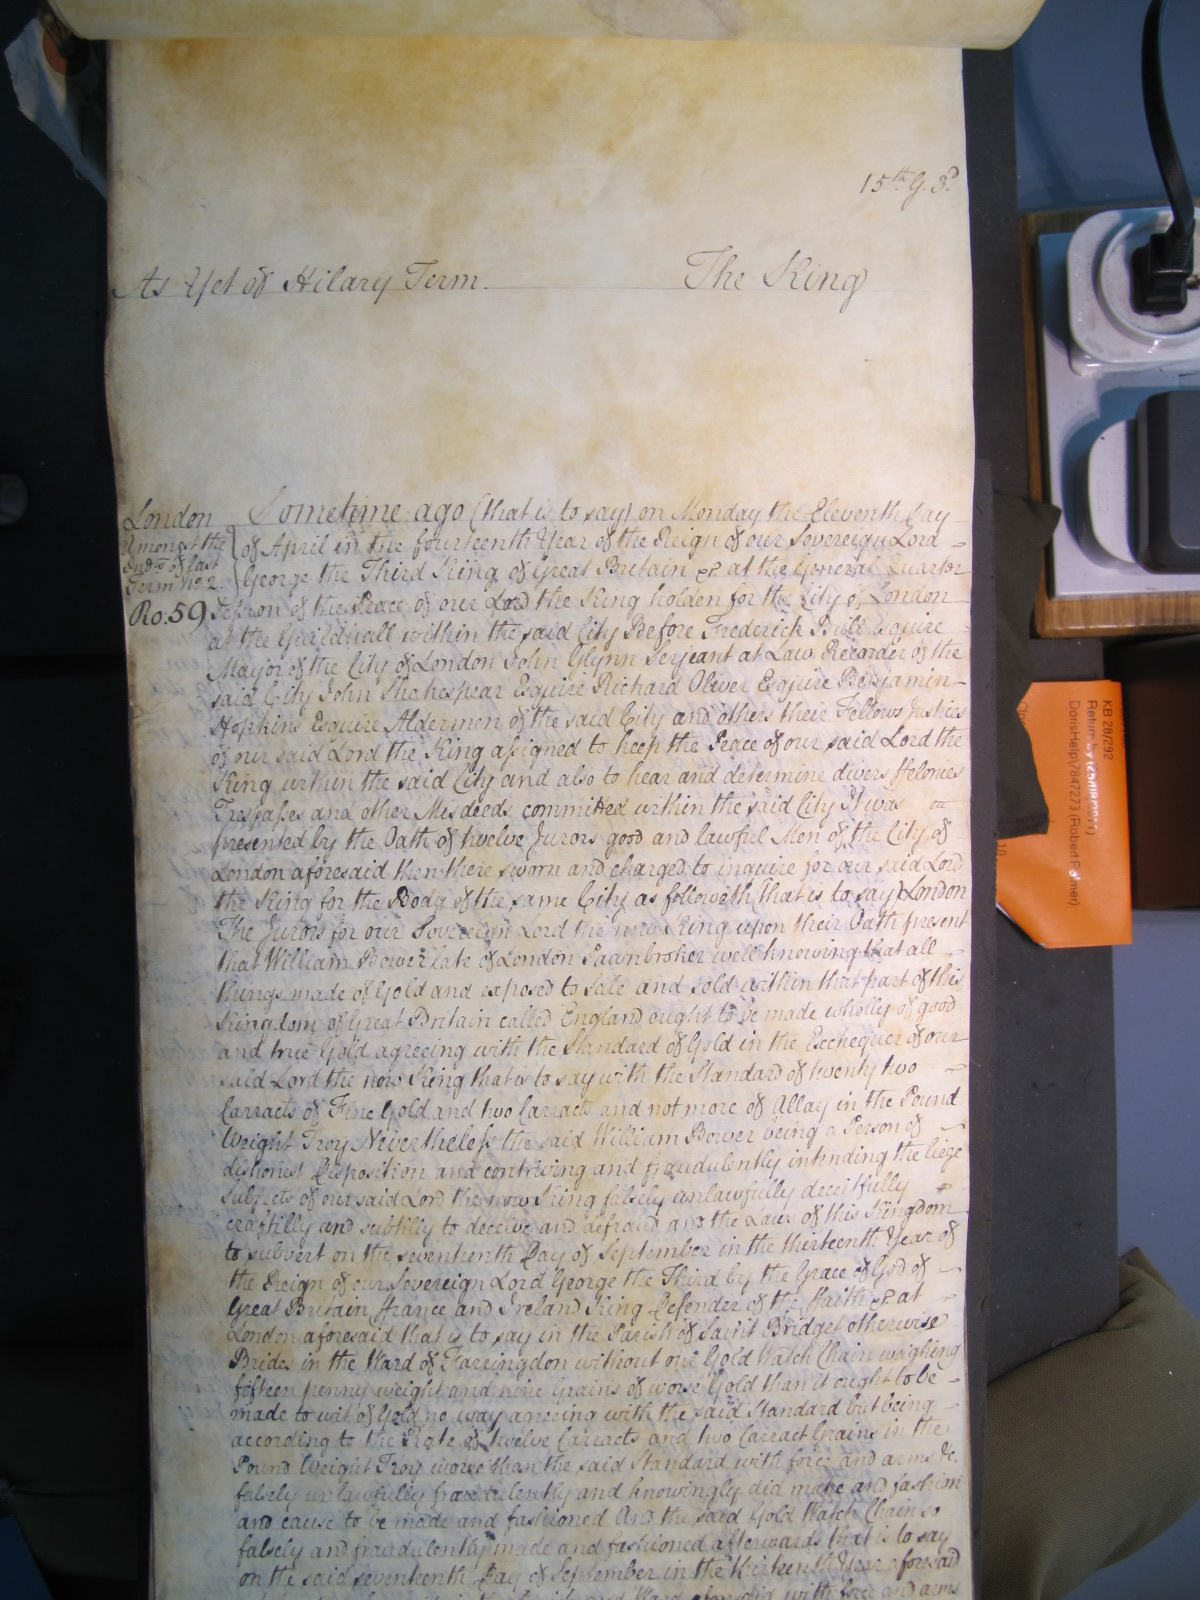 15th G. 3d
As Yet of Hilary Term. The King
London Sometime ago (that is to say) on Monday the Eleventh Day
Amongst the of April in the fourteenth Year of the Reign of our Sovereign Lord
Indts of last George the Third King of Great Britain &c at the General Quarter
Term No 2.
Ro: 59 Session of the Peace of our Lord the King holden for the City of London
at the Guildhall within the said City Before Frederick Bull Esquire
Mayor of the City of London John Glynn Serjeant at Law Recorder of the
said City John Shakespear Esquire Richard Oliver Esquire Benjamin
Hopkins Esquire Aldermen of the said City and others their Fellows Justices
of our said Lord the King assigned to keep the Peace of our said Lord the
King within the said City and also to hear and determine divers Felonies
Trespasses and other Misdeeds committed within the said City It was
presented by the Oath of twelve Jurors good and lawful Men of the City of
London aforesaid then there sworn and charged to inquire for our said Lord
the King for the Body of the same City as followeth (that is to say) London
The Jurors for our Sovereign Lord the now King upon their Oath present
that William Bower late of London Pawnbroker well knowing that all
things made of Gold and exposed to Sale and sold within that part of this
Kingdom of Great Britain called England ought to be made wholly of good
and true Gold agreeing with the Standard of Gold in the Exchequer of our
said Lord the now King that is to say with the Standard of twenty two
Carracts of Fine Gold and two Carracts and not more of Allay in the Pound
Weight Troy Nevertheless the said William Bower being a Person of
dishonest Disposition and contriving and fraudulently intending the liege
Subjects of our said Lord the now King falsely unlawfully deceitfully
craftilly and subtilly to deceive and defraud and the Laws of this Kingdom
to subvert on the seventeenth Day of September in the thirteenth Year of
the Reign of our Sovereign Lord George the Third by the Grace of God of
Great Britain France and Ireland King Defender of the Faith &c at
London aforesaid that is to say in the Parish of Saint Bridget otherwise
Brides in the Ward of Farringdon without one Gold Watch Chain weighing
fifteen penny weight and nine Grains of worse Gold than it ought to be
made to wit of Gold no way agreeing with the said Standard but being
according to the Rate of twelve Carracts and two Carract Grains in the
Pound Weight Troy worse than the said Standard with force and arms &c.
falsely unlawfully fraudulently and knowingly did make and fashion
and cause to be made and fashioned And the said Gold Watch Chain so
falsely and fraudulently made and fashioned afterwards that is to say
on the said seventeenth Day of September in the thirteenth Year aforesaid
aforesaid with force and arms
KB 28/292
DorisHelp\/847273 (Robert Palmer)